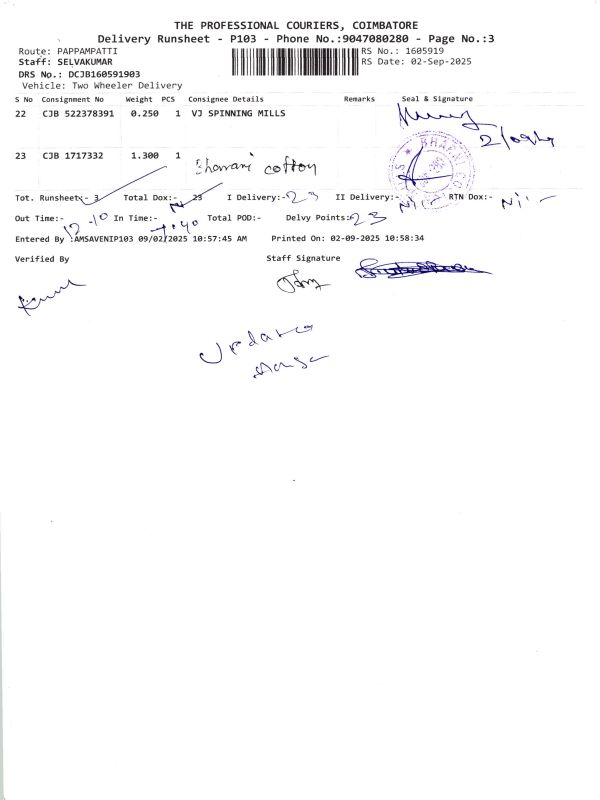 THE PROFESSIONAL COURIERS, COIMBATORE
Delivery Runsheet - P103 - Phone No.:9047080280 - Page No.:3
Route: PAPPAMPATTI
RS No.: 1605919
Staff: SELVAKUMAR
RS Date: 02-Sep-2025
DRS No.: DCJB160591903
Vehicle: Two Wheeler Delivery
S No Consignment No Weight PCS Consignee Details Remarks Seal & Signature
22 CJB 522378391 0.250 1 VJ SPINNING MILLS
23 CJB 1717332 1.300 1 Bhavani cotton
Tot. Runsheet:- 3 Total Dox:- 23 I Delivery:- 23 II Delivery:- Nil RTN Dox:- Nil
Out Time:- 12-10 In Time:- 4.40 Total POD:- Delvy Points:- 23
Entered By :AMSAVENIP103 09/02/2025 10:57:45 AM Printed On: 02-09-2025 10:58:34
Verified By Staff Signature